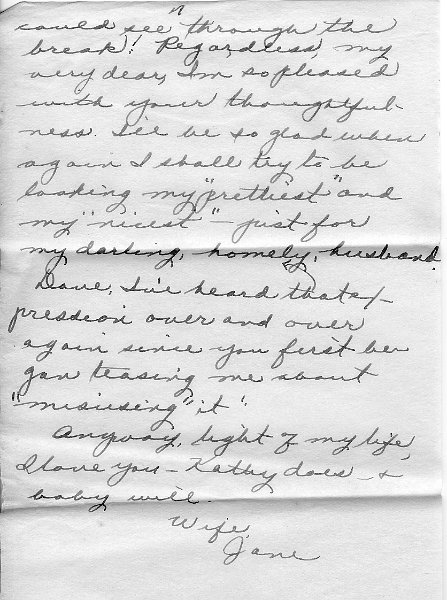 could see, through the
break! Regardless, my
very dear, I'm so pleased
with your thoughtful-
ness. I'll be so glad when
again I shall try to be
looking my "prettiest" and
my "nicest" - just for
my darling, homely, husband.
Dave, I've heard that ex-
pression over and over
again since you first be-
gan teasing me about
"misusing" it!
Anyway, light of my life,
I love you - Kathy does - &
baby will.
Wife,
Jane